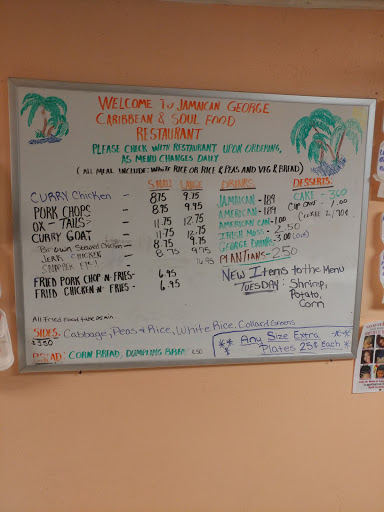 WELCOME TO JAMAICAN GEORGE
CARIBBEAN & SOUL FOOD
RESTAURANT
PLEASE CHECK WITH RESTAURANT UPON ORDERING,
AS MENU CHANGES DAILY
(ALL MEAL INCLUDE: WHITE RICE OR RICE & PEAS AND VEG & BREAD)
SMALL LARGE DRINKS: DESSERTS:
CURRY Chicken 8.75 9.75
PORK CHOPS - 8.95 9.95
OX-TAILS - 11.75 12.75
CURRY GOAT - 11.75 12.75
Brown Stewed Chicken 8.75 9.75
JERK CHICKEN - 8.75 9.75
SNAPPER FISH
FRIED PORK CHOP N FRIES- 6.95
FRIED CHICKEN N FRIES - 6.95
JAMAICAN - 1.89
AMERICAN - 1.89
AMERICAN CAN - 1.00
IRISH MOSS - 2.50
GEORGE Drinks - 3.00
PLANTIANS - 2.50
CAKE - 3.00
CUP CAKE
COOKIE
NEW Items to the Menu
TUESDAY: Shrimp,
Potato,
Corn
All Fried Food take 25 min
SIDES: Cabbage, Peas & Rice, White Rice, Collard Greens
3.50
BREAD: CORN BREAD, DUMPLING .50
** Any Size Extra **
** Plates 25¢ Each *